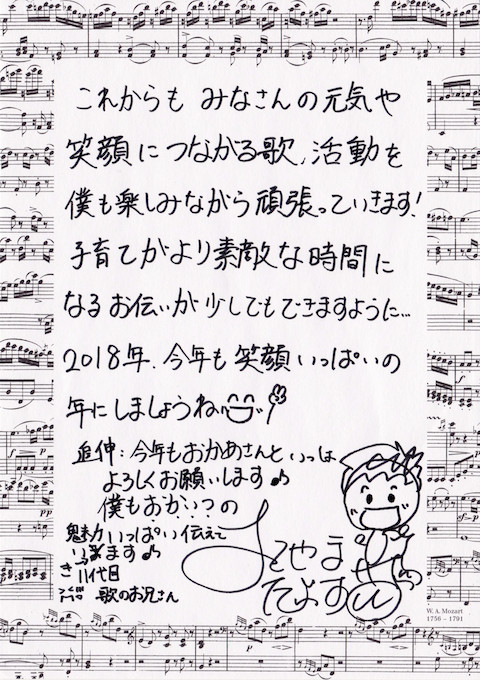 これからも みなさんの元気や
笑顔につながる歌、活動を
僕も楽しみながら頑張っていきます!
子育てがより素敵な時間に
なるお伝いが少しでもできますように…
2018年、今年も笑顔いっぱいの
年にしましょうね
追伸:今年もおかあさんといっしょ
よろしくお願いします♪
僕もおかい?の
魅力いっぱい伝えて
いきます♪
11代目
歌のお兄さん
W. A. Mozart
1756 – 1791